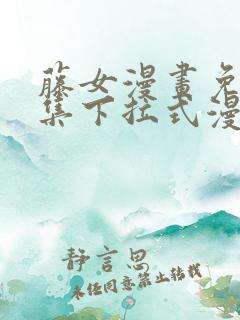 藤女漫畫免
集下拉式漫
静言思
未经同意禁止转载